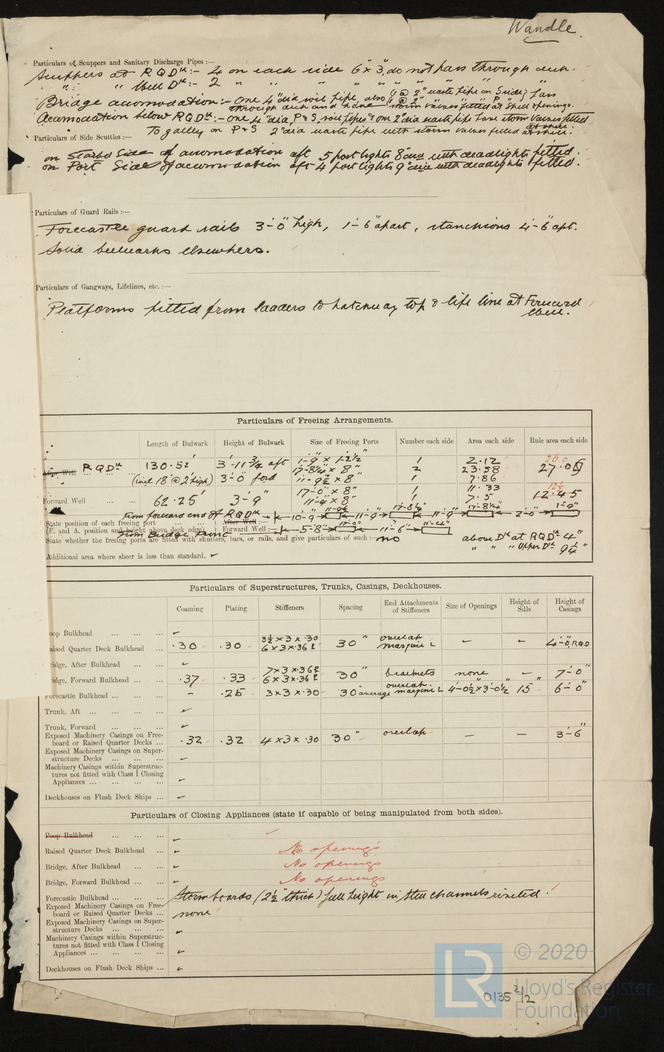 Wandle
Particulars of Scuppers and Sanitary Discharge Pipes :—
Scuppers at RQDk:- 4 on each side 6"x3", do not pass through deck.
" " Well Dk:- 2 " " " " " "
Bridge accomodation:- One 4" dia soil pipe, also
through deck and have storm valves fitted at shell openings.
Accomodation below RQDk:- one 4" dia, P & S, soil pipe & one 2" dia waste pipe have storm valves fitted
at shell.
To galley on P & S 2" dia waste pipe with storm valves fitted at shell.
Particulars of Side Scuttles :—
on Starbd Side of accomodation aft 5 port lights 8" dia with deadlights fitted.
on Port Side of accomodation aft 4 port lights 9" dia with deadlights fitted.
Particulars of Guard Rails :—
Forecastle guard rails 3'-0" high, 1'-6" apart, stanchions 4'-6" apt.
Solid bulwarks elsewhere.
Particulars of Gangways, Lifelines, etc. :—
Platforms fitted from ladders to hatchway top & life line at Forward
Well.
Particulars of Freeing Arrangements.
Length of Bulwark Height of Bulwark Size of Freeing Ports Number each side Area each side Rule area each side
After Well RQDk 130.52' 3'-11 3/4" aft 1'-9" x 1'-2 1/2" 1 2.12 27.06
17'-8 1/4" x 8" 2 23.58
(incl 18' @ 2' high) 3'-0" ford 11'-9 1/2" x 8" 1 7.86
17'-0" x 8" 1 11.33
Forward Well 62.25' 3'-9" 11'-4 x 8" 1 7.5 12.45
State position of each freeing port
(F. and A. position and height above deck edge)
from forward end of RQDk After Well :— 10'-9" 11'-9" 17'-8 1/4" 11'-9" 17'-8 1/4" 2'-0" 1'-9"
from Bridge Front Forward Well :— 5'-8" 17'-0" 11'-6" 11'-4"
State whether the freeing ports are fitted with shutters, bars, or rails, and give particulars of such :— no above Dk at RQDk 4"
" " " Upper Dk 9 1/2"
Additional area where sheer is less than standard.
Particulars of Superstructures, Trunks, Casings, Deckhouses.
Coaming Plating Stiffeners Spacing End Attachments of Stiffeners Size of Openings Height of Sills Height of Casings
Poop Bulkhead ... ... ...
Raised Quarter Deck Bulkhead ... .30 .30 3 1/2 x 3 x .30 6 x 3 x .36 30" overlap margine L - - 4'-0" RQD
Bridge, After Bulkhead ...
Bridge, Forward Bulkhead ... .37 .33 7 x 3 x .36 6 x 3 x .36 30" brackets none - 7'-0"
Forecastle Bulkhead ... - .25 3 x 3 x .30 30 average overlap. margine L 4'-0 1/2" x 3'-0 1/2" 15" 6'-0"
Trunk, Aft ... ... ...
Trunk, Forward ... ... ...
Exposed Machinery Casings on Free-
board or Raised Quarter Decks ... .32 .32 4 x 3 x .30 30" overlap - - 3'-6"
Exposed Machinery Casings on Super-
structure Decks ... ... ...
Machinery Casings within Superstruc-
tures not fitted with Class I Closing
Appliances ... ... ...
Deckhouses on Flush Deck Ships ...
Particulars of Closing Appliances (state if capable of being manipulated from both sides).
Poop Bulkhead ... ... ...
Raised Quarter Deck Bulkhead ... No openings
Bridge, After Bulkhead ... ... No openings
Bridge, Forward Bulkhead ... ... No openings
Forecastle Bulkhead ... ... Storm boards (2 1/2" thick) full height in steel channels riveted.
Exposed Machinery Casings on Free-
board or Raised Quarter Decks ... none
Exposed Machinery Casings on Super-
structure Decks ... ... ...
Machinery Casings within Superstruc-
tures not fitted with Class I Closing
Appliances ... ... ...
Deckhouses on Flush Deck Ships ...
LR © 2020
Lloyd's Register
Foundation
0135 2/2